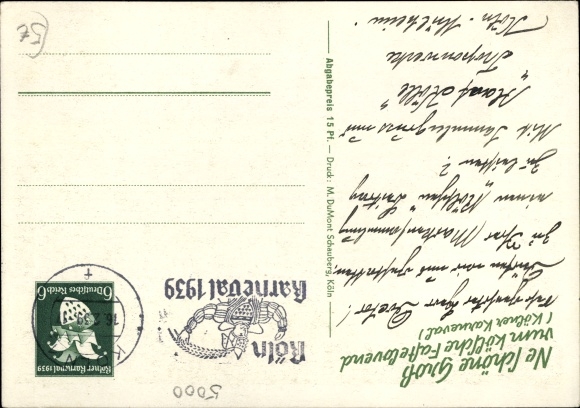 Ne schöne Groß
vum kölsche Fastelovend
(Kölner Karneval)
Sehr geehrter Herr Doktor!
Dürfen wir uns gestatten,
zu Ihrer Markensammlung
einen
zu leisten?
Mit Sammlergruss
"Haus Kölle"
Tropenwerke
Köln-Mülheim.
Abgabepreis 15 Pf. — Druck: M. DuMont Schauberg, Köln
Köln
Karneval 1939
Kölner Karneval 1939
6 Deutsches Reich 6
16.2.39
5000